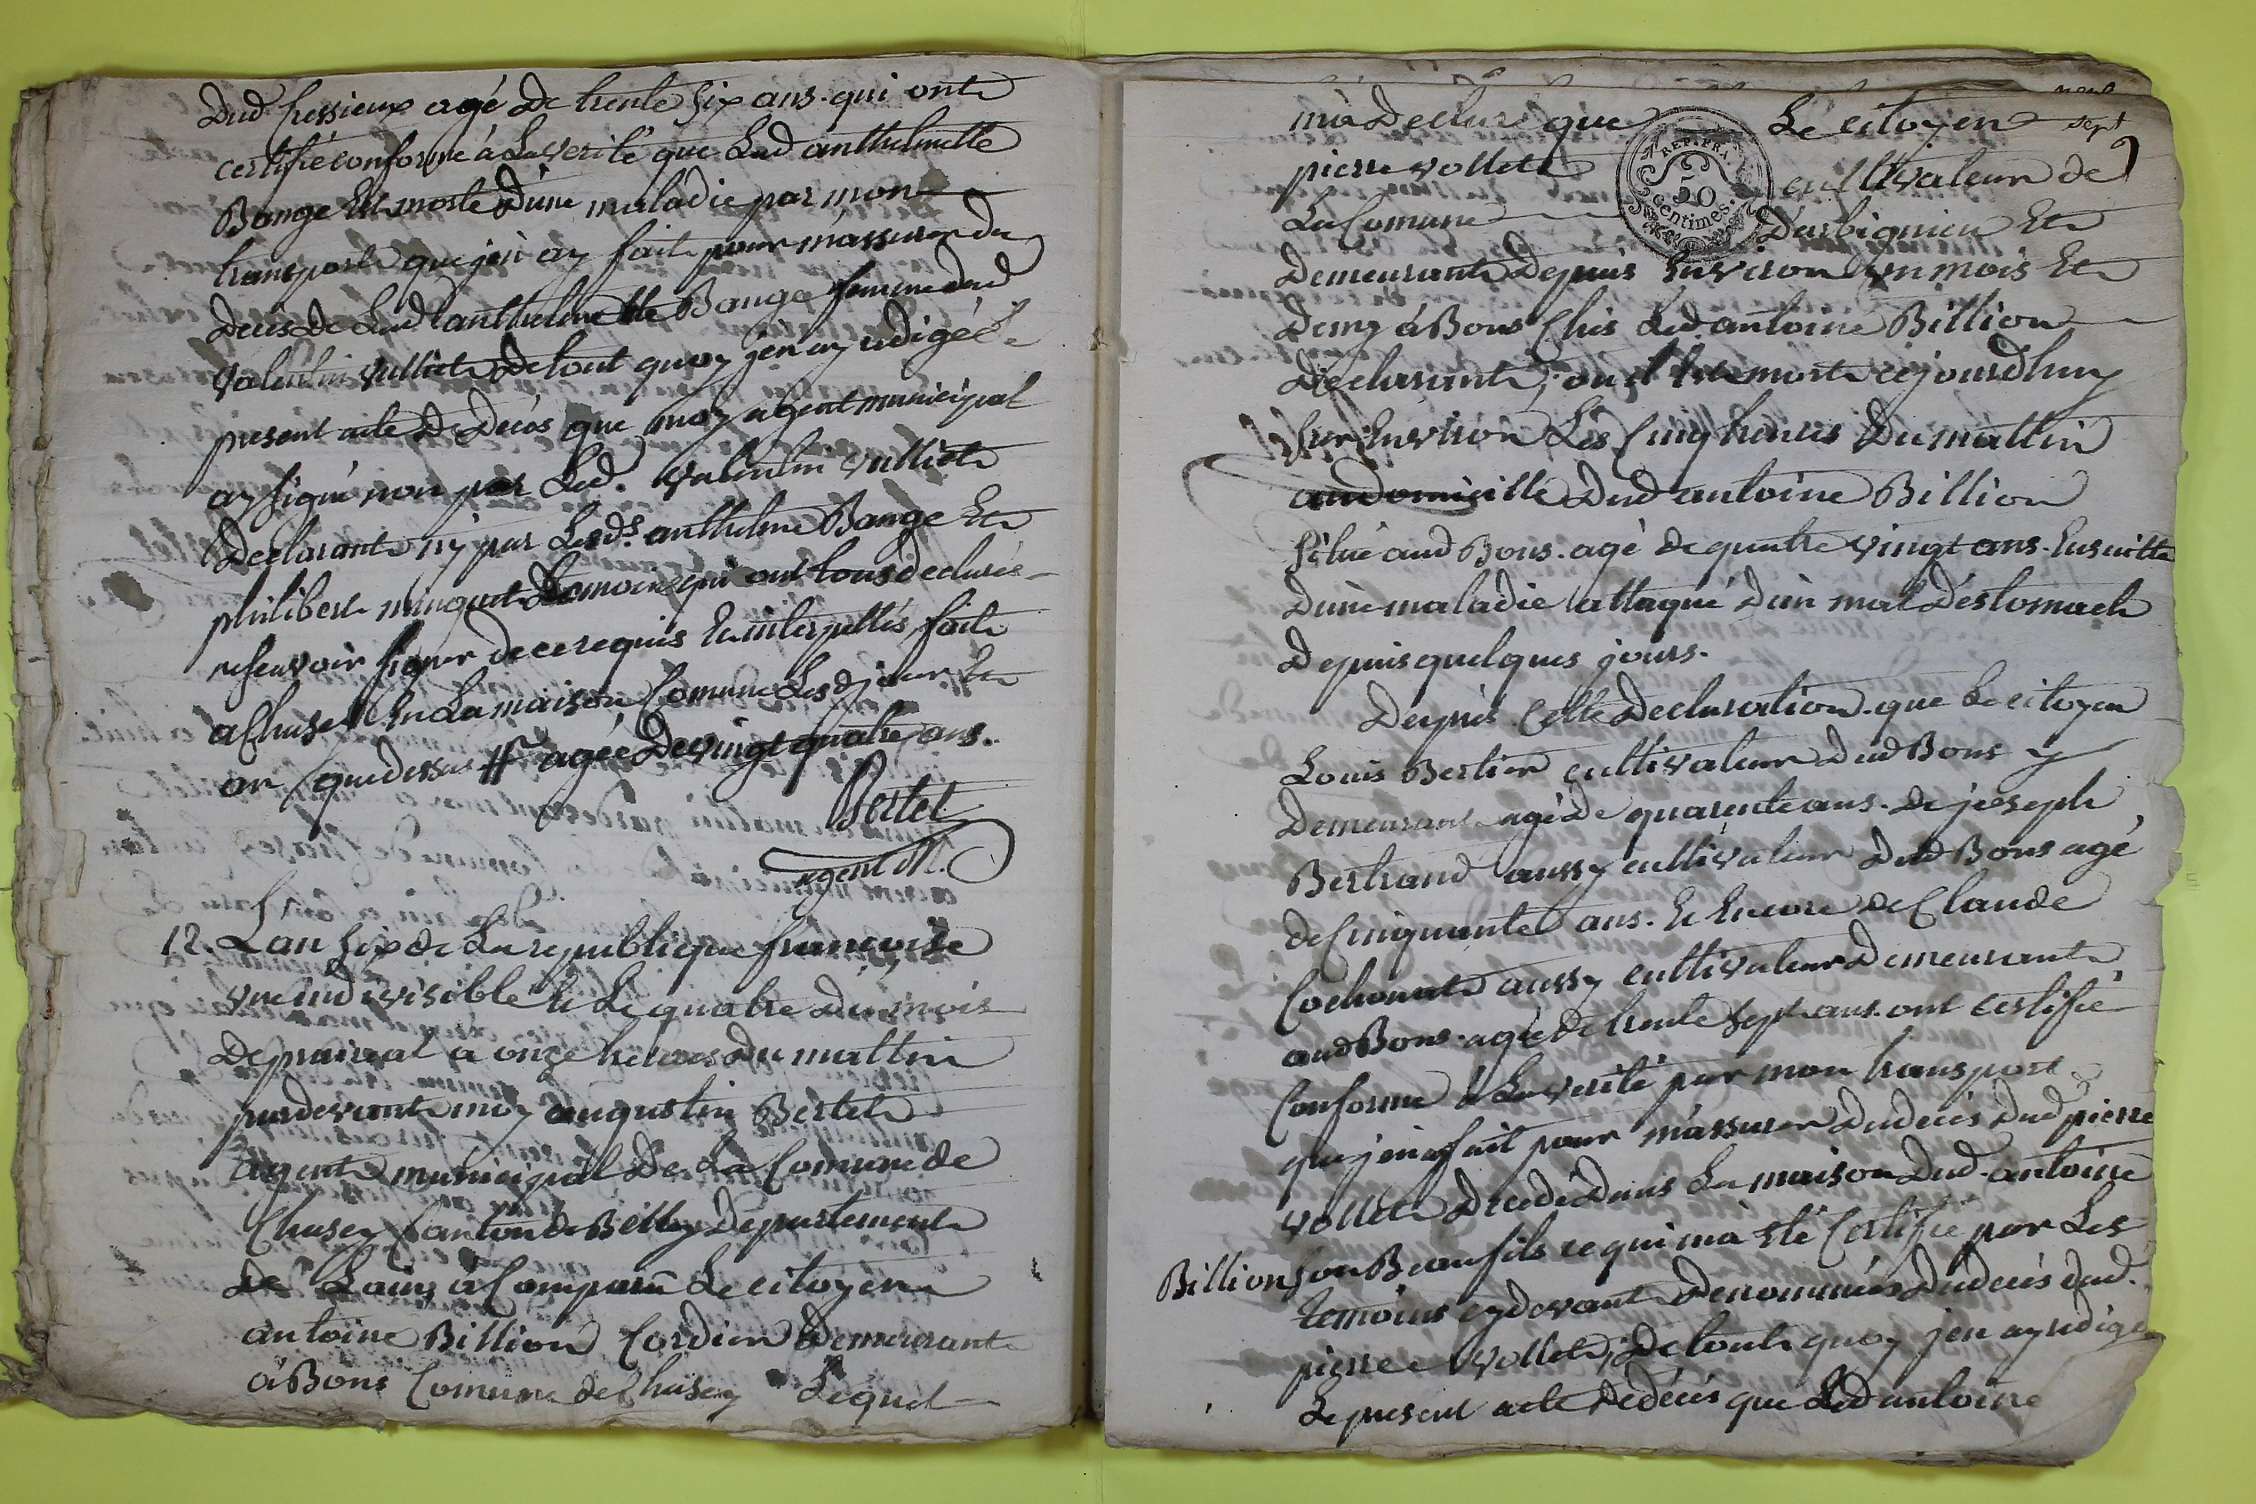 Dud Chessieux agé De trente six ans. qui onte
certifié conforme à La verité que Lad anthelmette
Bange Est morte D'une maladie par mon
transporte que j'en ay faite pour massurer du
Deces De Lad anthelmette Bange femme dud
valentin vulliete De tout quoy j'en ay redigée
present acte De Décès que moy agent municipal
ay signé non par Led. valentin vulliete
Declarante ny par Lesds. anthelme Bange Ete
philiberte minquet temoins qui ont tous declarés
ne scavoir signer de ce requis Et interpellés, faite
a Chasey En La maison Comune Les jour Ete
an que dessus # agée De vingt quatre ans.
Bertet
agent M.
12. L'an six de La republique françoise
une indivisible Et Le quatre Du mois
De prairial a onze heures Du mattin
pardevante moy augustin Bertete
agente municipal De La Comune de
Chasey Canton de Belley Departemente
De Lain à Comparu Le citoyen
antoine Billion Cordier Demeurante
à Bons Comune de Chasey Lequel
neuf
sept
m'à Declare que Le citoyen
pierre vollete cultivateur de
La Comune D'arbignieu Ete
REP. FRA.
50
centimes.
Demeurante Depuis Environ un mois Ete
Demy à Bons Chés Led. antoine Billion
Déclarante, ou il Est morte cejourdhuy
sur Environ Les Cinq heures Du mattin
au domicille Dud antoine Billion
situé aud Bons. agé de quatre vingt ans. Ensuitte
D'une maladie attaqué D'un mal D'éstomach
Depuis quelques jours.
Depuis Cette Declaration. que Le citoyen
Louis Bertier cultivateur Dud Bons y
Demeurant agé De quarente ans. De joseph
Bertrand aussy cultivateur Dud Bons agé
de Cinquante ans. Et Encore de Claude
Cochonate aussy cultivateur Demeurante
aud Bons. agé de trente sept ans. ont certifié
Conforme à La verité par mon transport
que j'en ay fait pour m'assurer du deces Dud pierre
vollete Decedé Dans La maison Dud. antoine
Billion son Beaufils ce qui m'a eté Certifié par Les
temoins cydevante Denommés Du deces dud.
pierre vollete, De toute quoy j'en ay redigé
Le present acte de décès que Led antoine